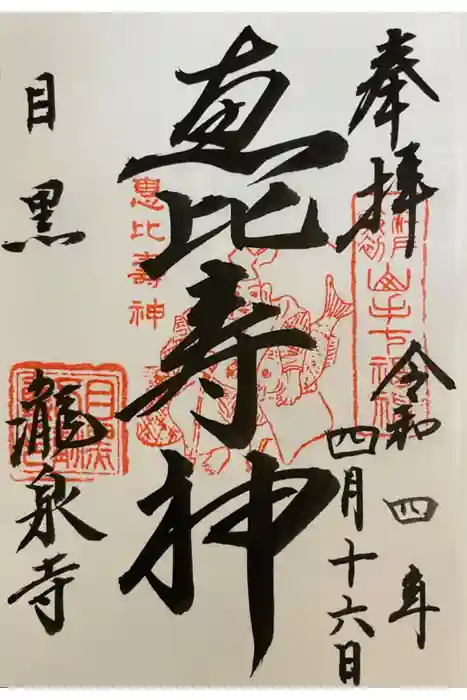 奉拝
令和四年
四月十六日
恵比寿神
恵比寿神
目黒
瀧泉寺